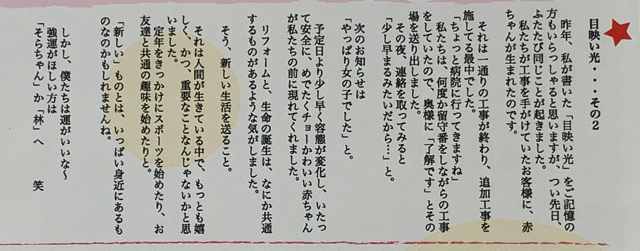 目映い光・・・その２
昨年、私が書いた「目映い光」をご記憶の
方もいらっしゃると思いますが、つい先日、
ふたたび同じことが起きました。
私たちが工事を手がけていたお客様に、赤
ちゃんが生まれたのです。
それは一通りの工事が終わり、追加工事を
施してる最中でした。
「ちょっと病院に行ってきますね」
私たちは、何度か留守番をしながらの工事
をしていたので、奥様に「了解です」とその
場を送り出しました。
その夜、連絡を取ってみると
「少し早まるみたいだから…」と。
次のお知らせは
「やっぱり女の子でした」と。
予定日より少し早く容態が変化し、いたっ
て安全に、めでたくチョーかわいい赤ちゃん
が私たちの前に現れてくれました。
リフォームと、生命の誕生は、なにか共通
するものがあるような気がしました。
そう、新しい生活を送ること。
それは人間が生きている中で、もっとも嬉
しく、かつ、重要なことなんじゃないかと思
いました。
定年をきっかけにスポーツを始めたり、お
友達と共通の趣味を始めたりと。
「新しい」ものとは、いっぱい身近にあるも
のなのかもしれませんね。
しかし、僕たちは運がいいな～
強運がほしい方は
「そらちゃん」か「林」へ　笑